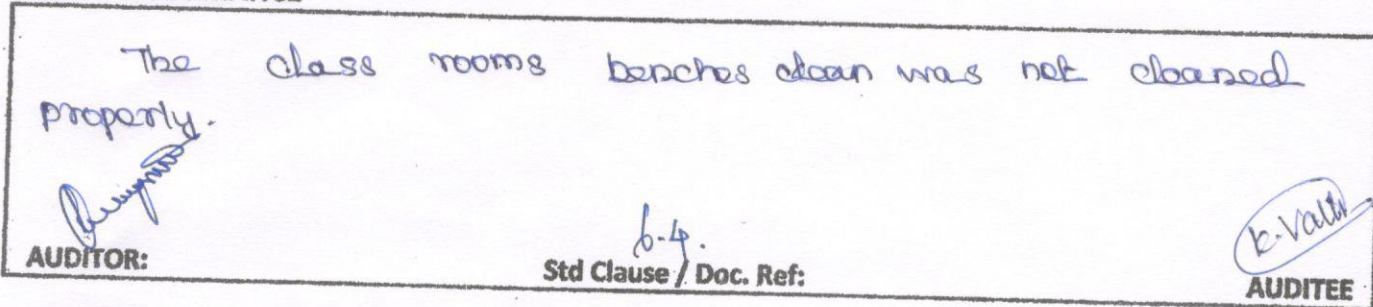 The class rooms benches clean was not cleaned
properly.
6.4.
AUDITOR:
Std Clause / Doc. Ref:
K. Valli
AUDITEE